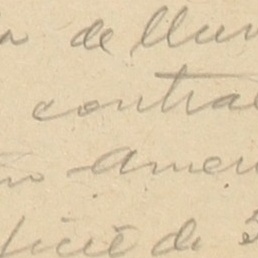 a de lluv
contra
no Ameri
ficie de 5